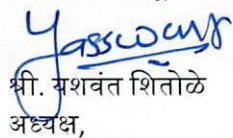 श्री. यशवंत शितोळे
अध्यक्ष,